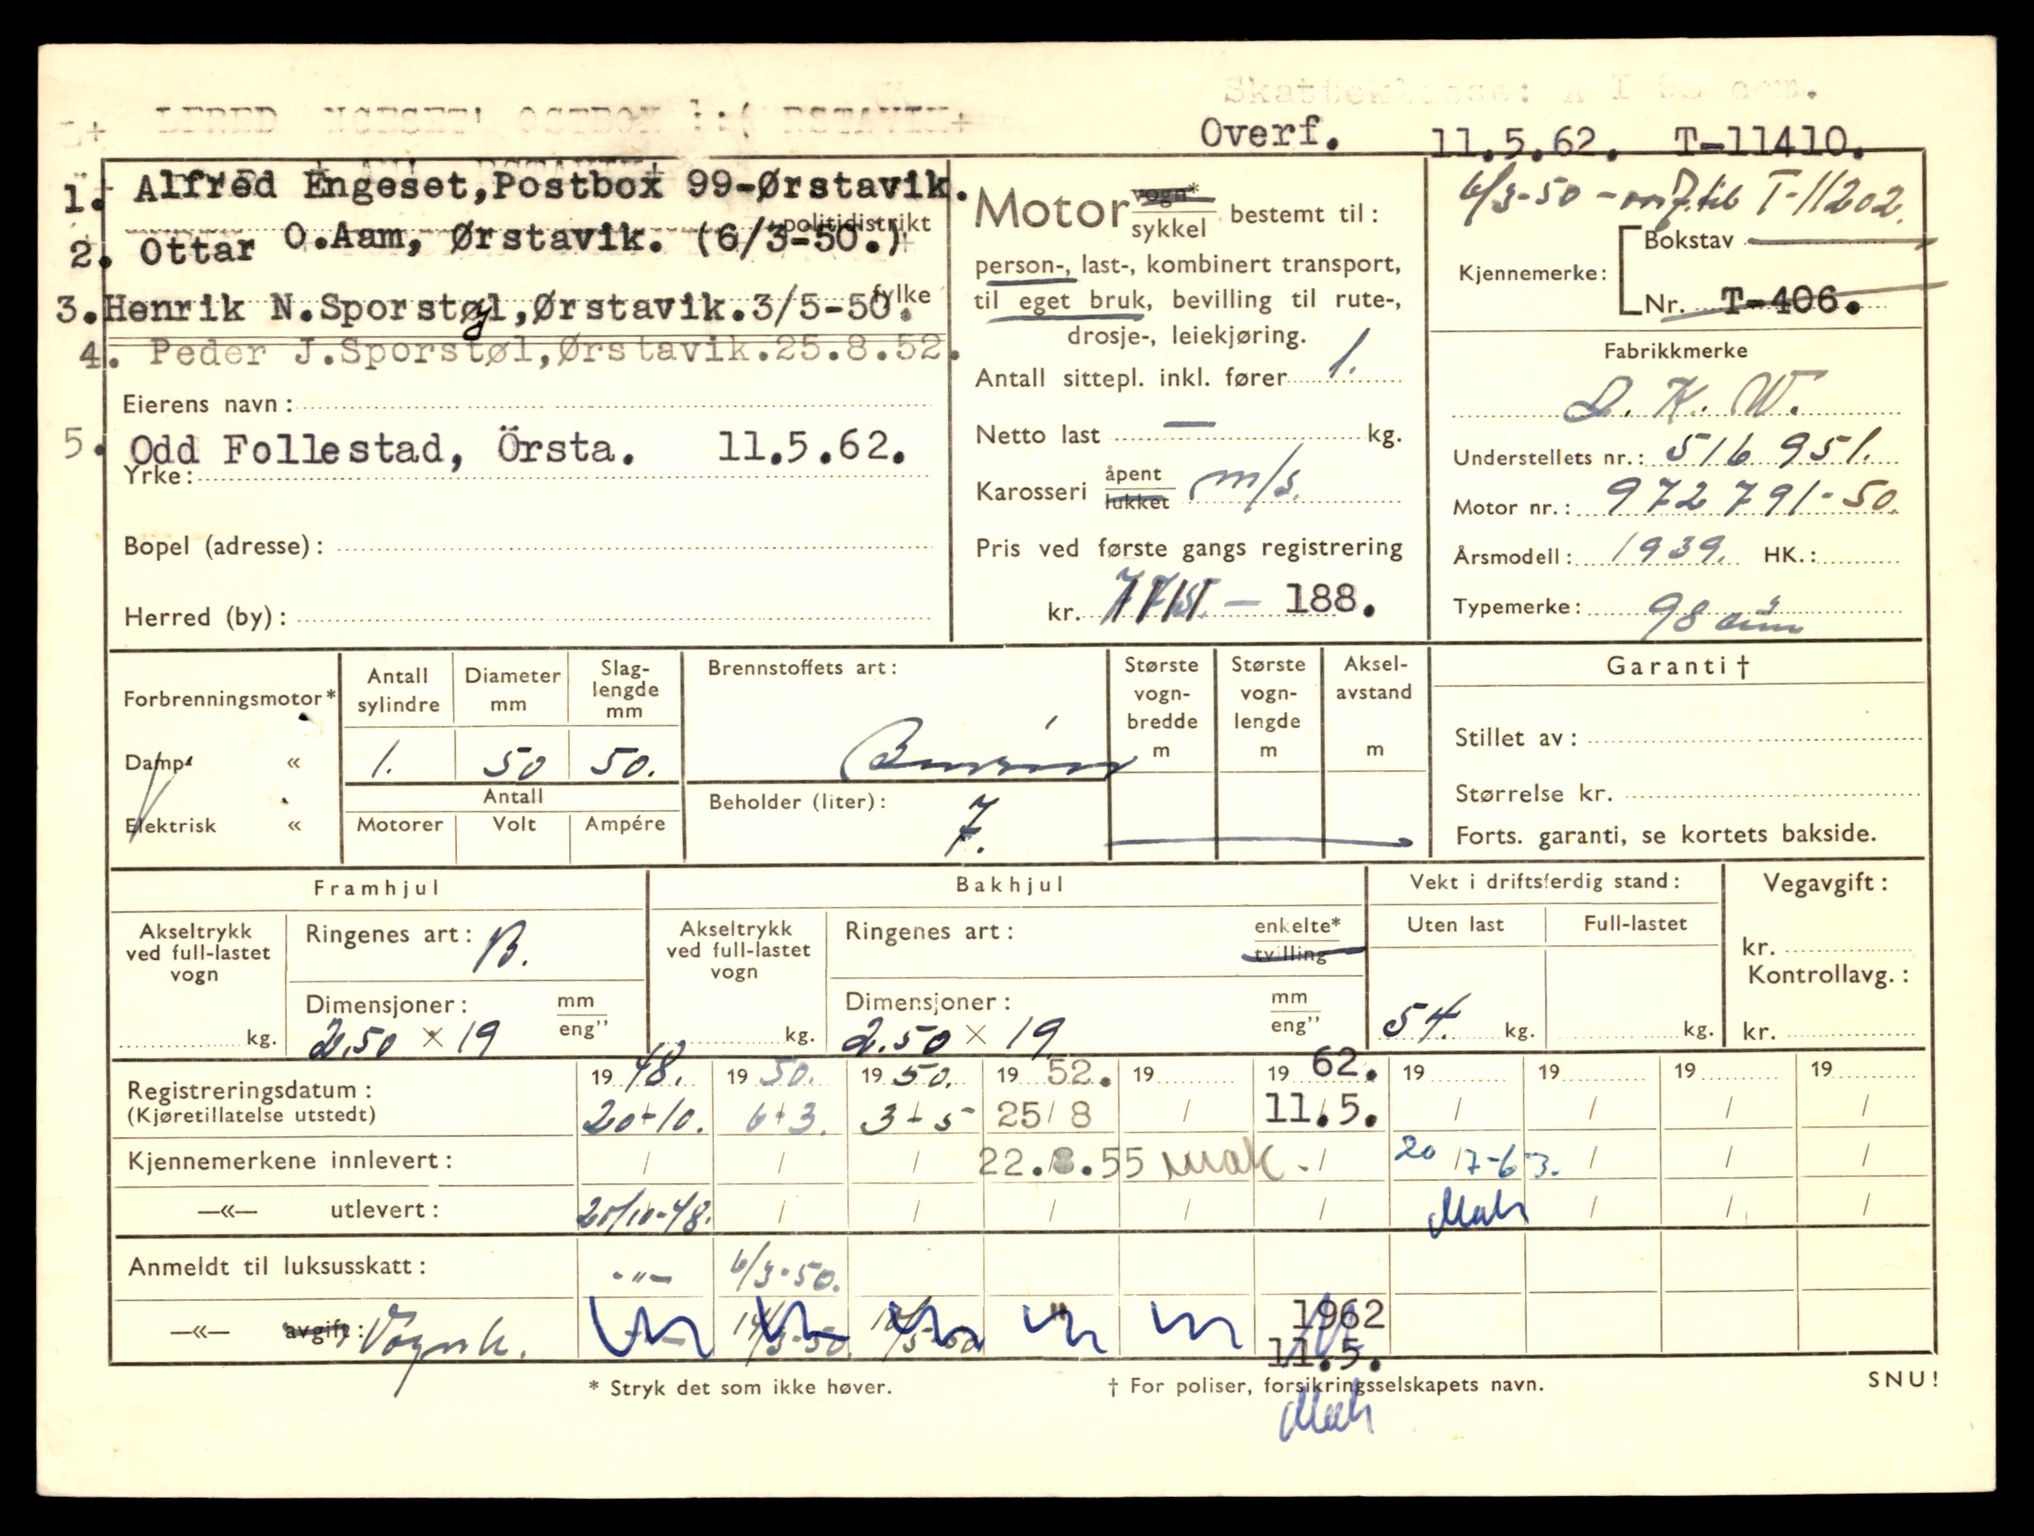 Skatteklasse:
Overf. 11.5.62. T-11410.
1. Alfred Engeset,Postbox 99-Ørstavik.
politidistrikt
2. Ottar O.Aam, Ørstavik. (6/3-50.)
3.Henrik N.Sporstøl,Ørstavik.3/5-50.
fylke
4. Peder J.Sporstøl,Ørstavik.25.8.52.
Eierens navn:
5. Odd Follestad, Örsta. 11.5.62.
Yrke:
Bopel (adresse):
Herred (by):
Motor vogn* sykkel bestemt til:
person-, last-, kombinert transport,
til eget bruk, bevilling til rute-,
drosje-, leiekjøring.
Antall sittepl. inkl. fører 1.
Netto last — kg.
Karosseri åpent lukket m/s.
Pris ved første gangs registrering
kr. — 188.
6/3-50 - overf. til T-11202.
Bokstav
Kjennemerke:
Nr. T-406.
Fabrikkmerke
D. K. W.
Understellets nr.: 516 951.
Motor nr.: 972 791-50.
Årsmodell: 1939. HK.:
Typemerke: 98 ccm
Forbrenningsmotor*
Damp «
Elektrisk «
Antall sylindre
Diameter mm
Slag-lengde mm
1. 50 50.
Antall
Motorer Volt Ampére
Brennstoffets art:
Bensin
Beholder (liter):
7.
Største vogn-bredde m
Største vogn-lengde m
Aksel-avstand m
Garanti†
Stillet av:
Størrelse kr.
Forts. garanti, se kortets bakside.
Framhjul
Akseltrykk ved full-lastet vogn
kg.
Ringenes art: B.
Dimensjoner: mm eng”
2.50 × 19
Bakhjul
Akseltrykk ved full-lastet vogn
kg.
Ringenes art: enkelte* tvilling
Dimensjoner: mm eng”
2.50 × 19
Vekt i driftsferdig stand:
Uten last Full-lastet
54. kg. kg.
Vegavgift:
kr.
Kontrollavg.:
kr.
Registreringsdatum: 19 48. 19 50. 19 50. 19 52. 19 19 62. 19 19 19 19
(Kjøretillatelse utstedt) 20/10. 6/3. 3/5 25/8 / 11.5. / / / /
Kjennemerkene innlevert: / / / 22.8.55 Mak. / 20/7-63. / / /
—«— utlevert: 20/10-48. / / / / / Mak / / /
Anmeldt til luksusskatt: -"- 6/3-50.
—«— avgift: Vognk. 1962
11.5.
* Stryk det som ikke høver.
† For poliser, forsikringsselskapets navn.
SNU!
Mak